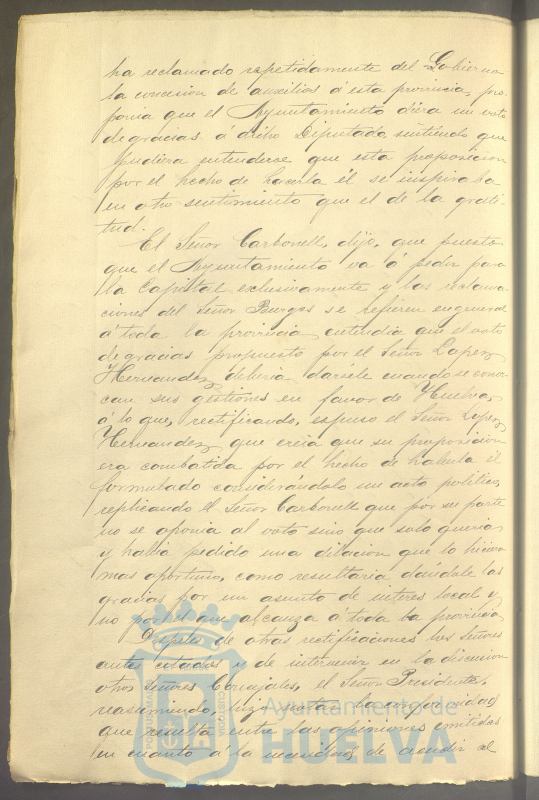 ha reclamado repetidamente del Gobierno
la concesion de auxilios á esta provincia, pro-
ponia que el Ayuntamiento diera un voto
de gracias á dicho Diputado sintiendo que
pudiera entenderse que esta proposicion
por el hecho de hacerla él se inspiraba
en otro sentimiento que el de la grati-
tud.
El Señor Carbonell, dijo, que puesto
que el Ayuntamiento va á pedir para
la Capital exclusivamente y las reclama-
ciones del Señor Burgos se refieren en general
á toda la provincia entendia que el voto
de gracias propuesto por el Señor Lopez
Hernandez deberia darsele cuando se conoz-
can sus gestiones en favor de Huelva,
á lo que, rectificando, espuso el Señor Lopez
Hernandez que creia que su proposicion
era combatida por el hecho de haberla él
formulado considerándolo un acto político,
replicando el Señor Carbonell que por su parte
no se oponia al voto sino que solo queria
y habia pedido una dilacion que lo hiciera
mas oportuno, como resultaria dándole las
gracias por un asunto de interes local y
no por el que alcanza á toda la provincia.
Despues de otras rectificaciones los Señores
antes citados y de intervenir en la discusion
otros Señores Concejales, el Señor Presidente,
reasumiendo, hizo notar la conformidad
que resulta entre las opiniones emitidas
en cuanto á la necesidad de acudir al
Ayuntamiento de
HUELVA
PORTUS MARIS
CUSTODIA